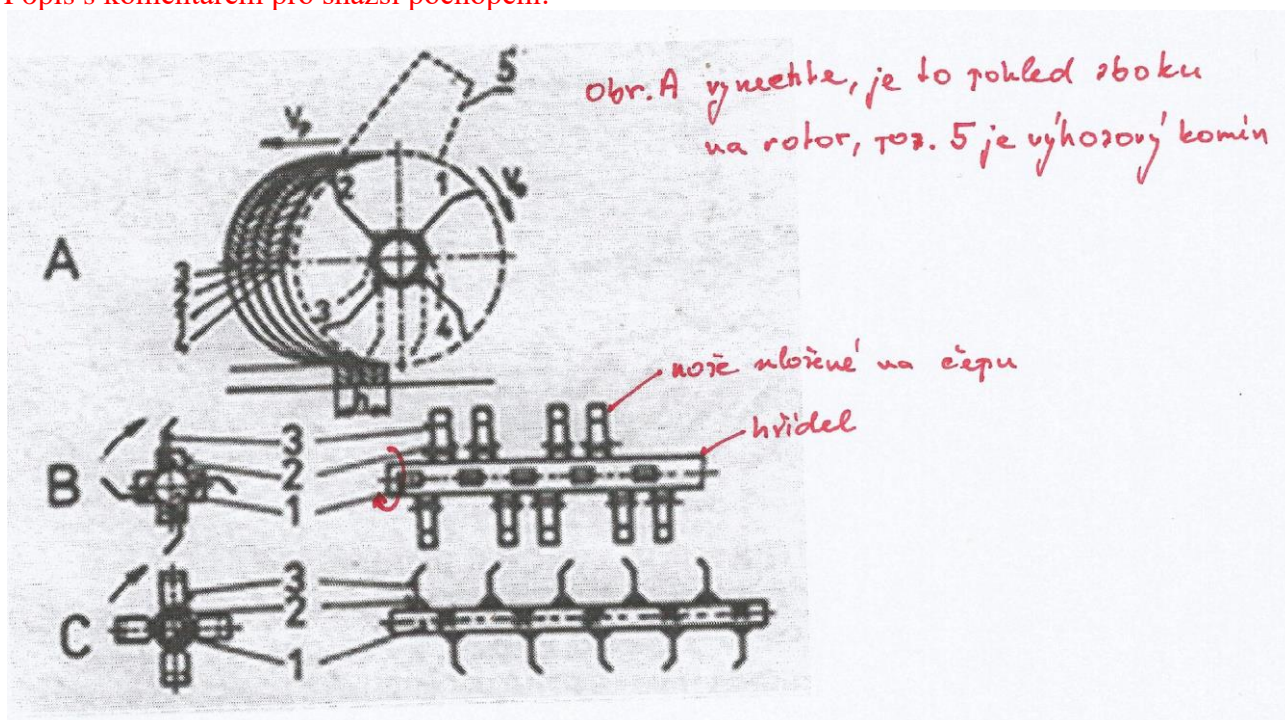 Popis s komentářem pro snazší pochopení:
obr. A vynechte, je to pohled zboku
na rotor, poz. 5 je výhozový komín
5
Vp
2
1
A
3
3
4
nože uložené na čepu
hřídel
B
3
2
1
C
3
2
1